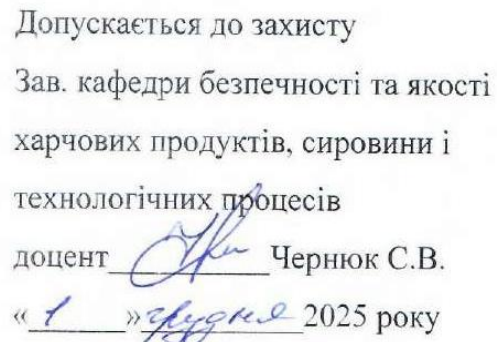 Допускається до захисту
Зав. кафедри безпечності та якості
харчових продуктів, сировини і
технологічних процесів
доцент__________Чернюк С.В.
«_1_»_грудня_2025 року